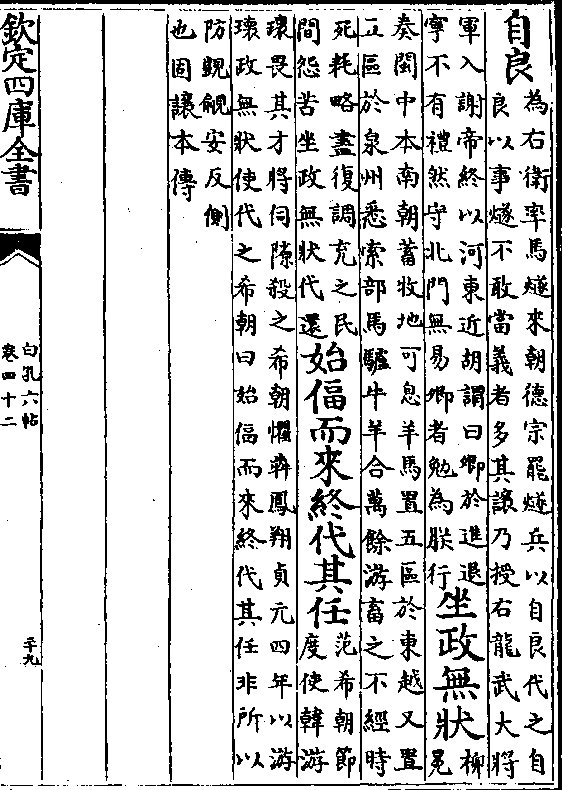 自良
為右衛率馬燧來朝德宗罷燧兵以自良代之自
良以事燧不敢當義者多其讓乃授右龍武大將
軍入謝帝終以河東近胡謂曰卿於進退
寧不有禮然守北門無易卿者勉為朕行
坐政無狀
柳
冕
奏閩中本南朝蓄牧地可息羊馬置五區於東越又置
五區於泉州悉索部馬驢牛羊合萬餘游畜之不經時
死耗略盡復調充之民
間怨苦坐政無狀代還
始偪而來終代其任
范希朝節
度使韓游
瓌畏其才將伺隙殺之希朝懼奔鳳翔貞元四年以游
瓌政無狀使代之希朝曰始偪而來終代其任非所以
防覬覦安反側
也固讓本傳
欽定四庫全書
白孔六帖
卷四十二